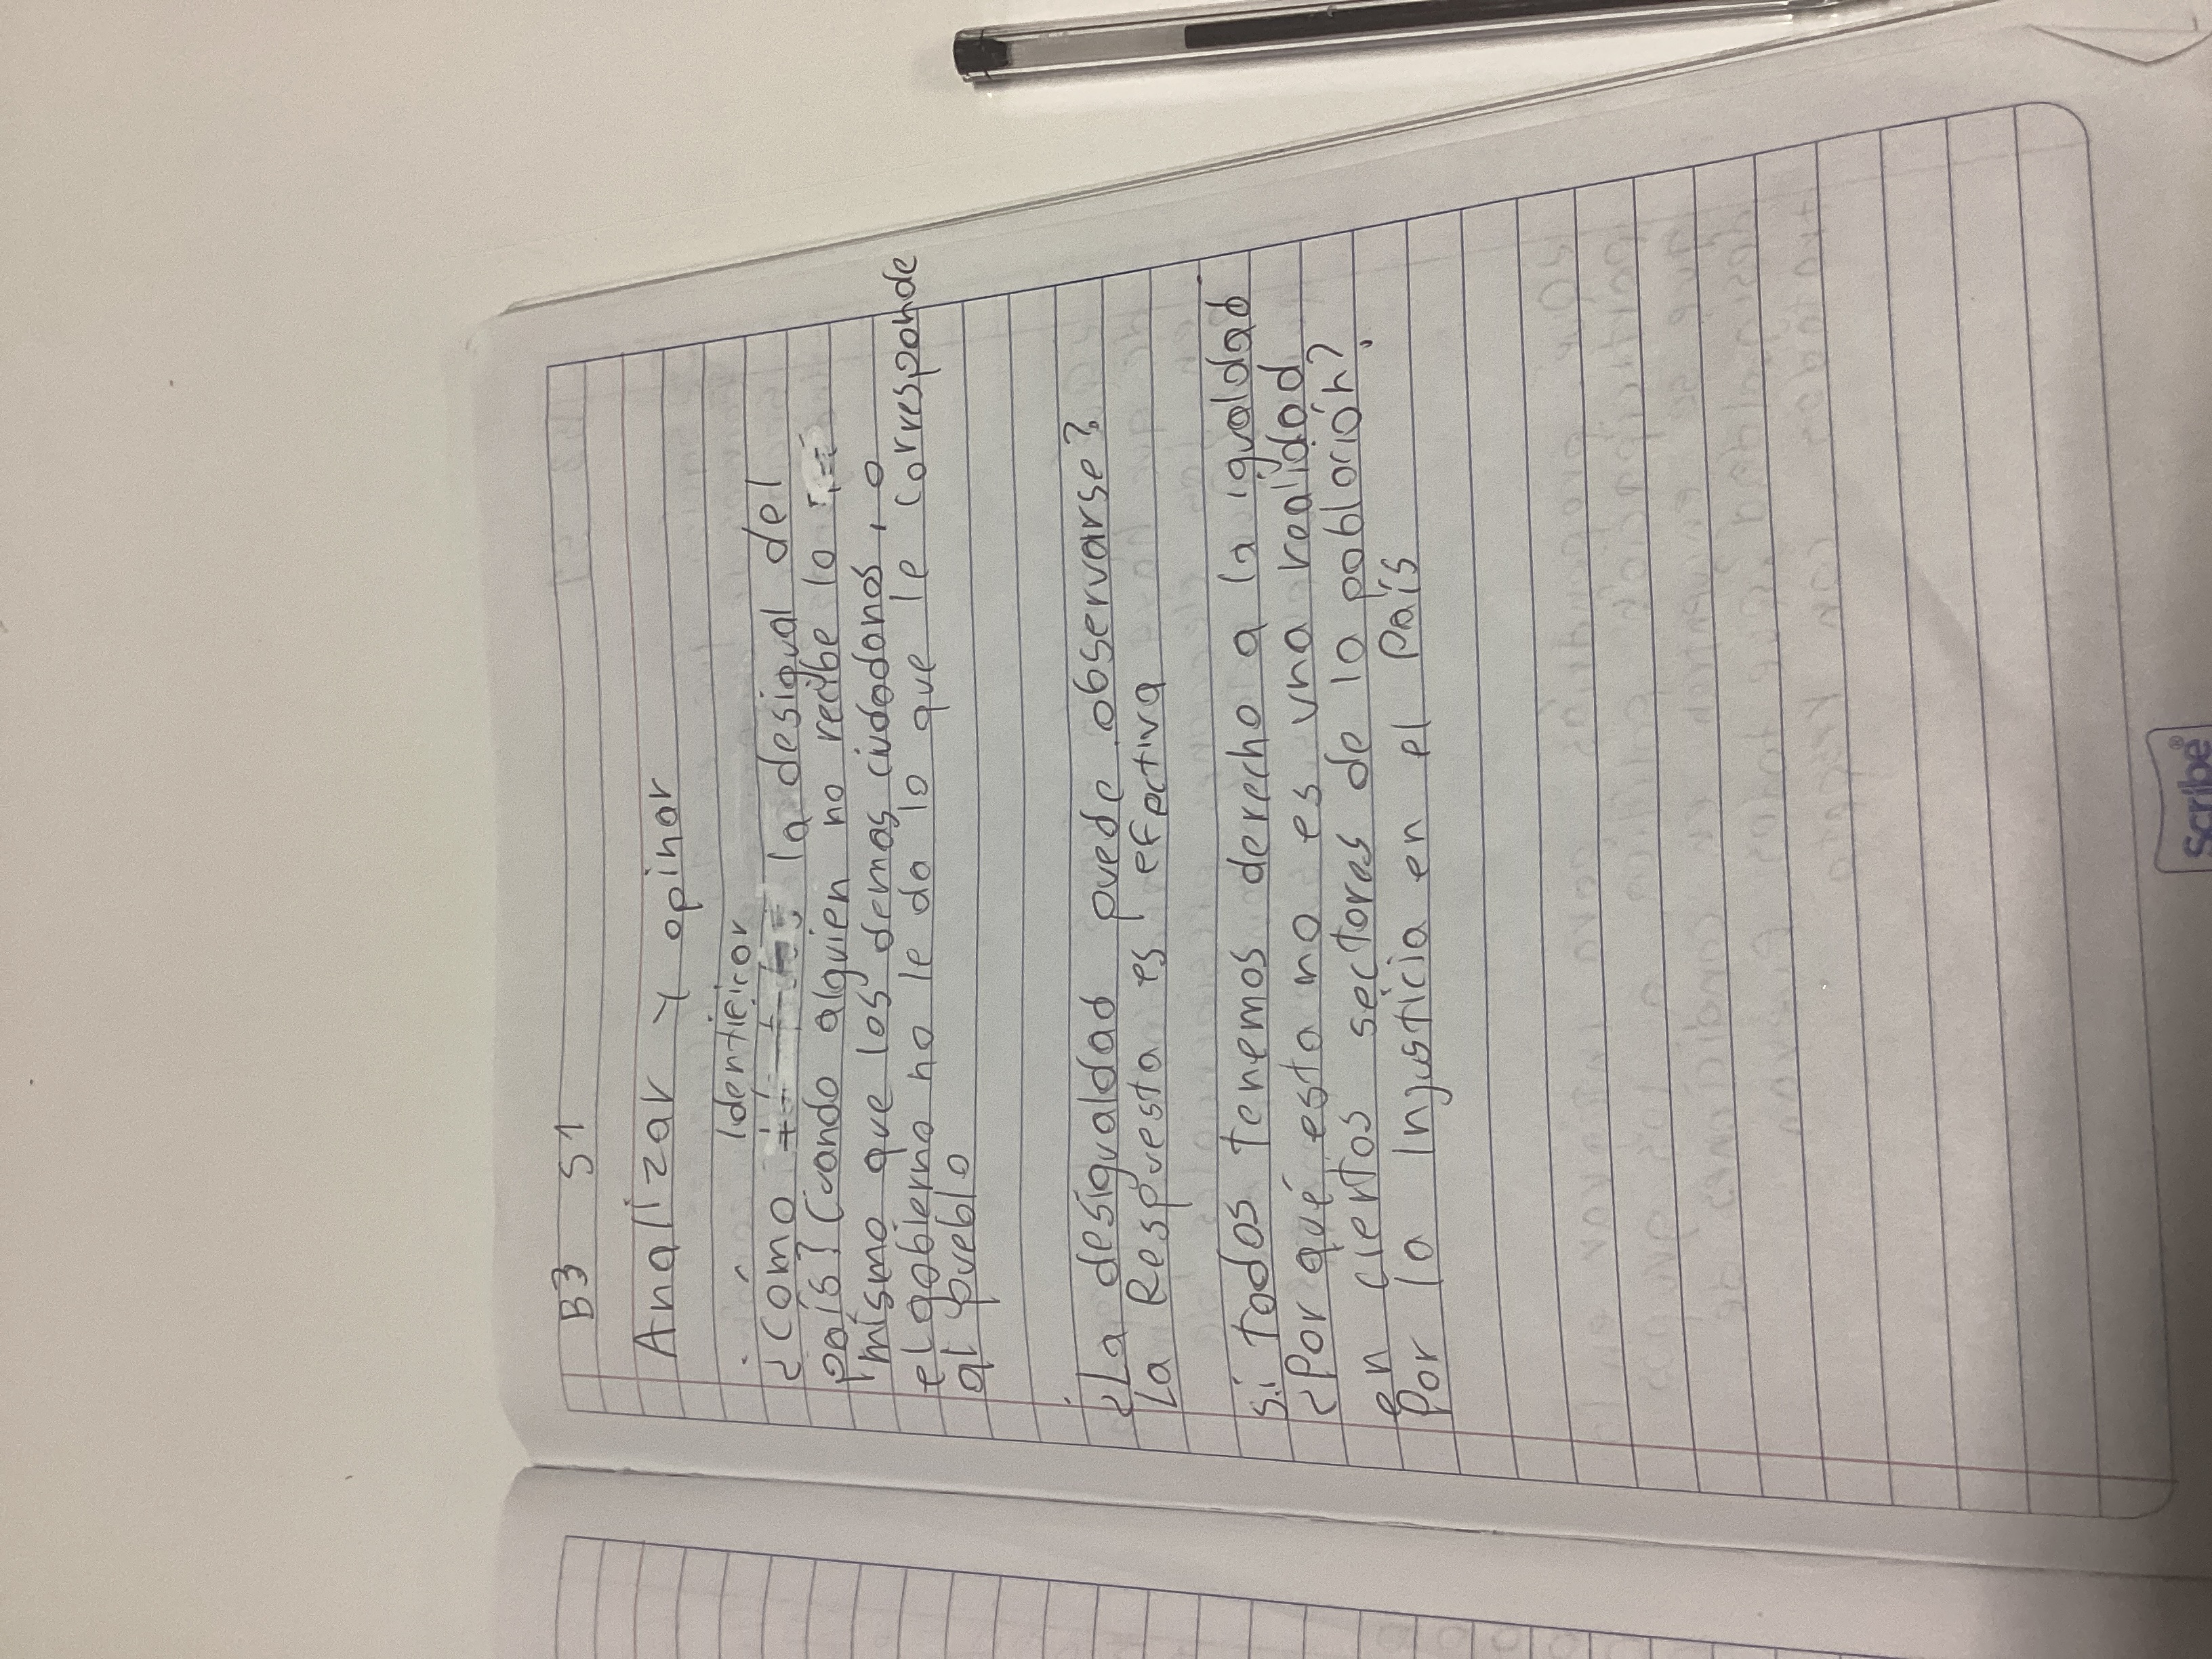 B3 S1
Analizar y opinar
identificar
¿Como la desigual del
país? Cuando alguien no recibe lo
mismo que los demas ciudadanos, o
el gobierno no le da lo que le corresponde
al pueblo
¿La desigualdad puede observarse?
La Respuesta es efectiva
Si todos tenemos derecho a la igualdad
¿Por qué esto no es una realidad
en ciertos sectores de la población?
Por la Injusticia en el País
Scribe®